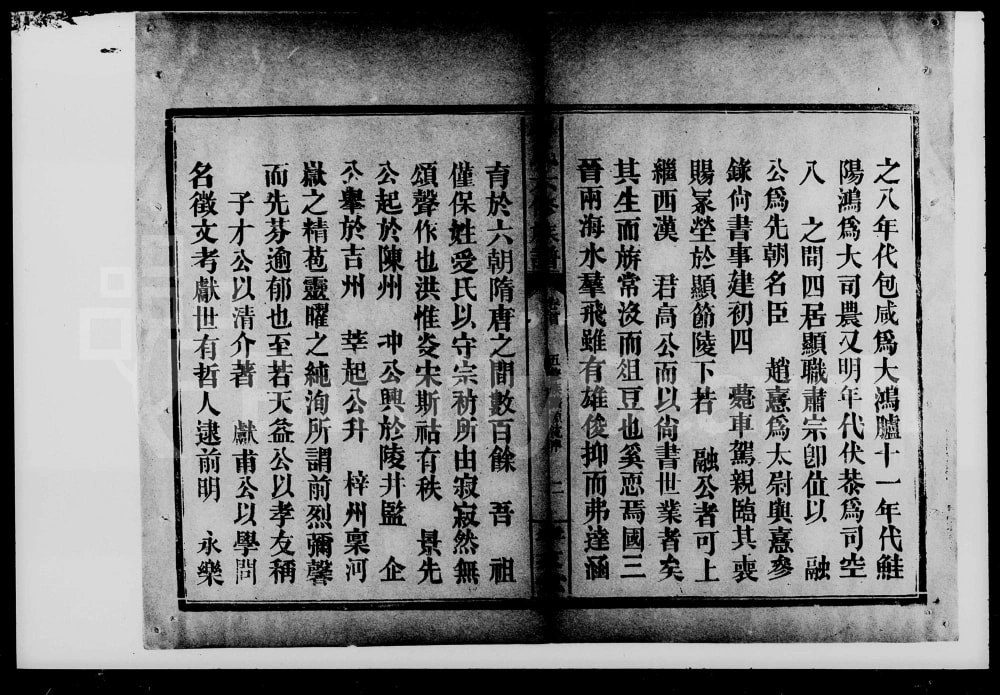 之八年代包咸爲大鴻臚十一年代鮭
陽鴻爲大司農又明年代伏恭爲司空
八 之間四居顯職肅宗卽位以 融
公爲先朝名臣 趙憙爲太尉與憙參
錄尙書事建初四 薨車駕親臨其喪
賜冢塋於顯節陵下若 融公者可上
繼西漢 君高公而以尙書世業者矣
其生而旂常沒而俎豆也奚恧焉國三
晉兩海水羣飛雖有雄俊抑而弗達涵
六修族譜 卷首 二
育於六朝隋唐之間數百餘 吾 祖
僅保姓愛氏以守宗祊所由寂寂然無
頌聲作也洪惟炎宋斯祜有秩 景先
公起於陳州 冲公興於陵井監 企
公舉於吉州 莘起公升 梓州稟河
嶽之精苞靈曜之純洵所謂前烈彌馨
而先芬逾郁也至若天益公以孝友稱
子才公以清介著 獻甫公以學問
名徵文考獻世有哲人逮前明 永樂